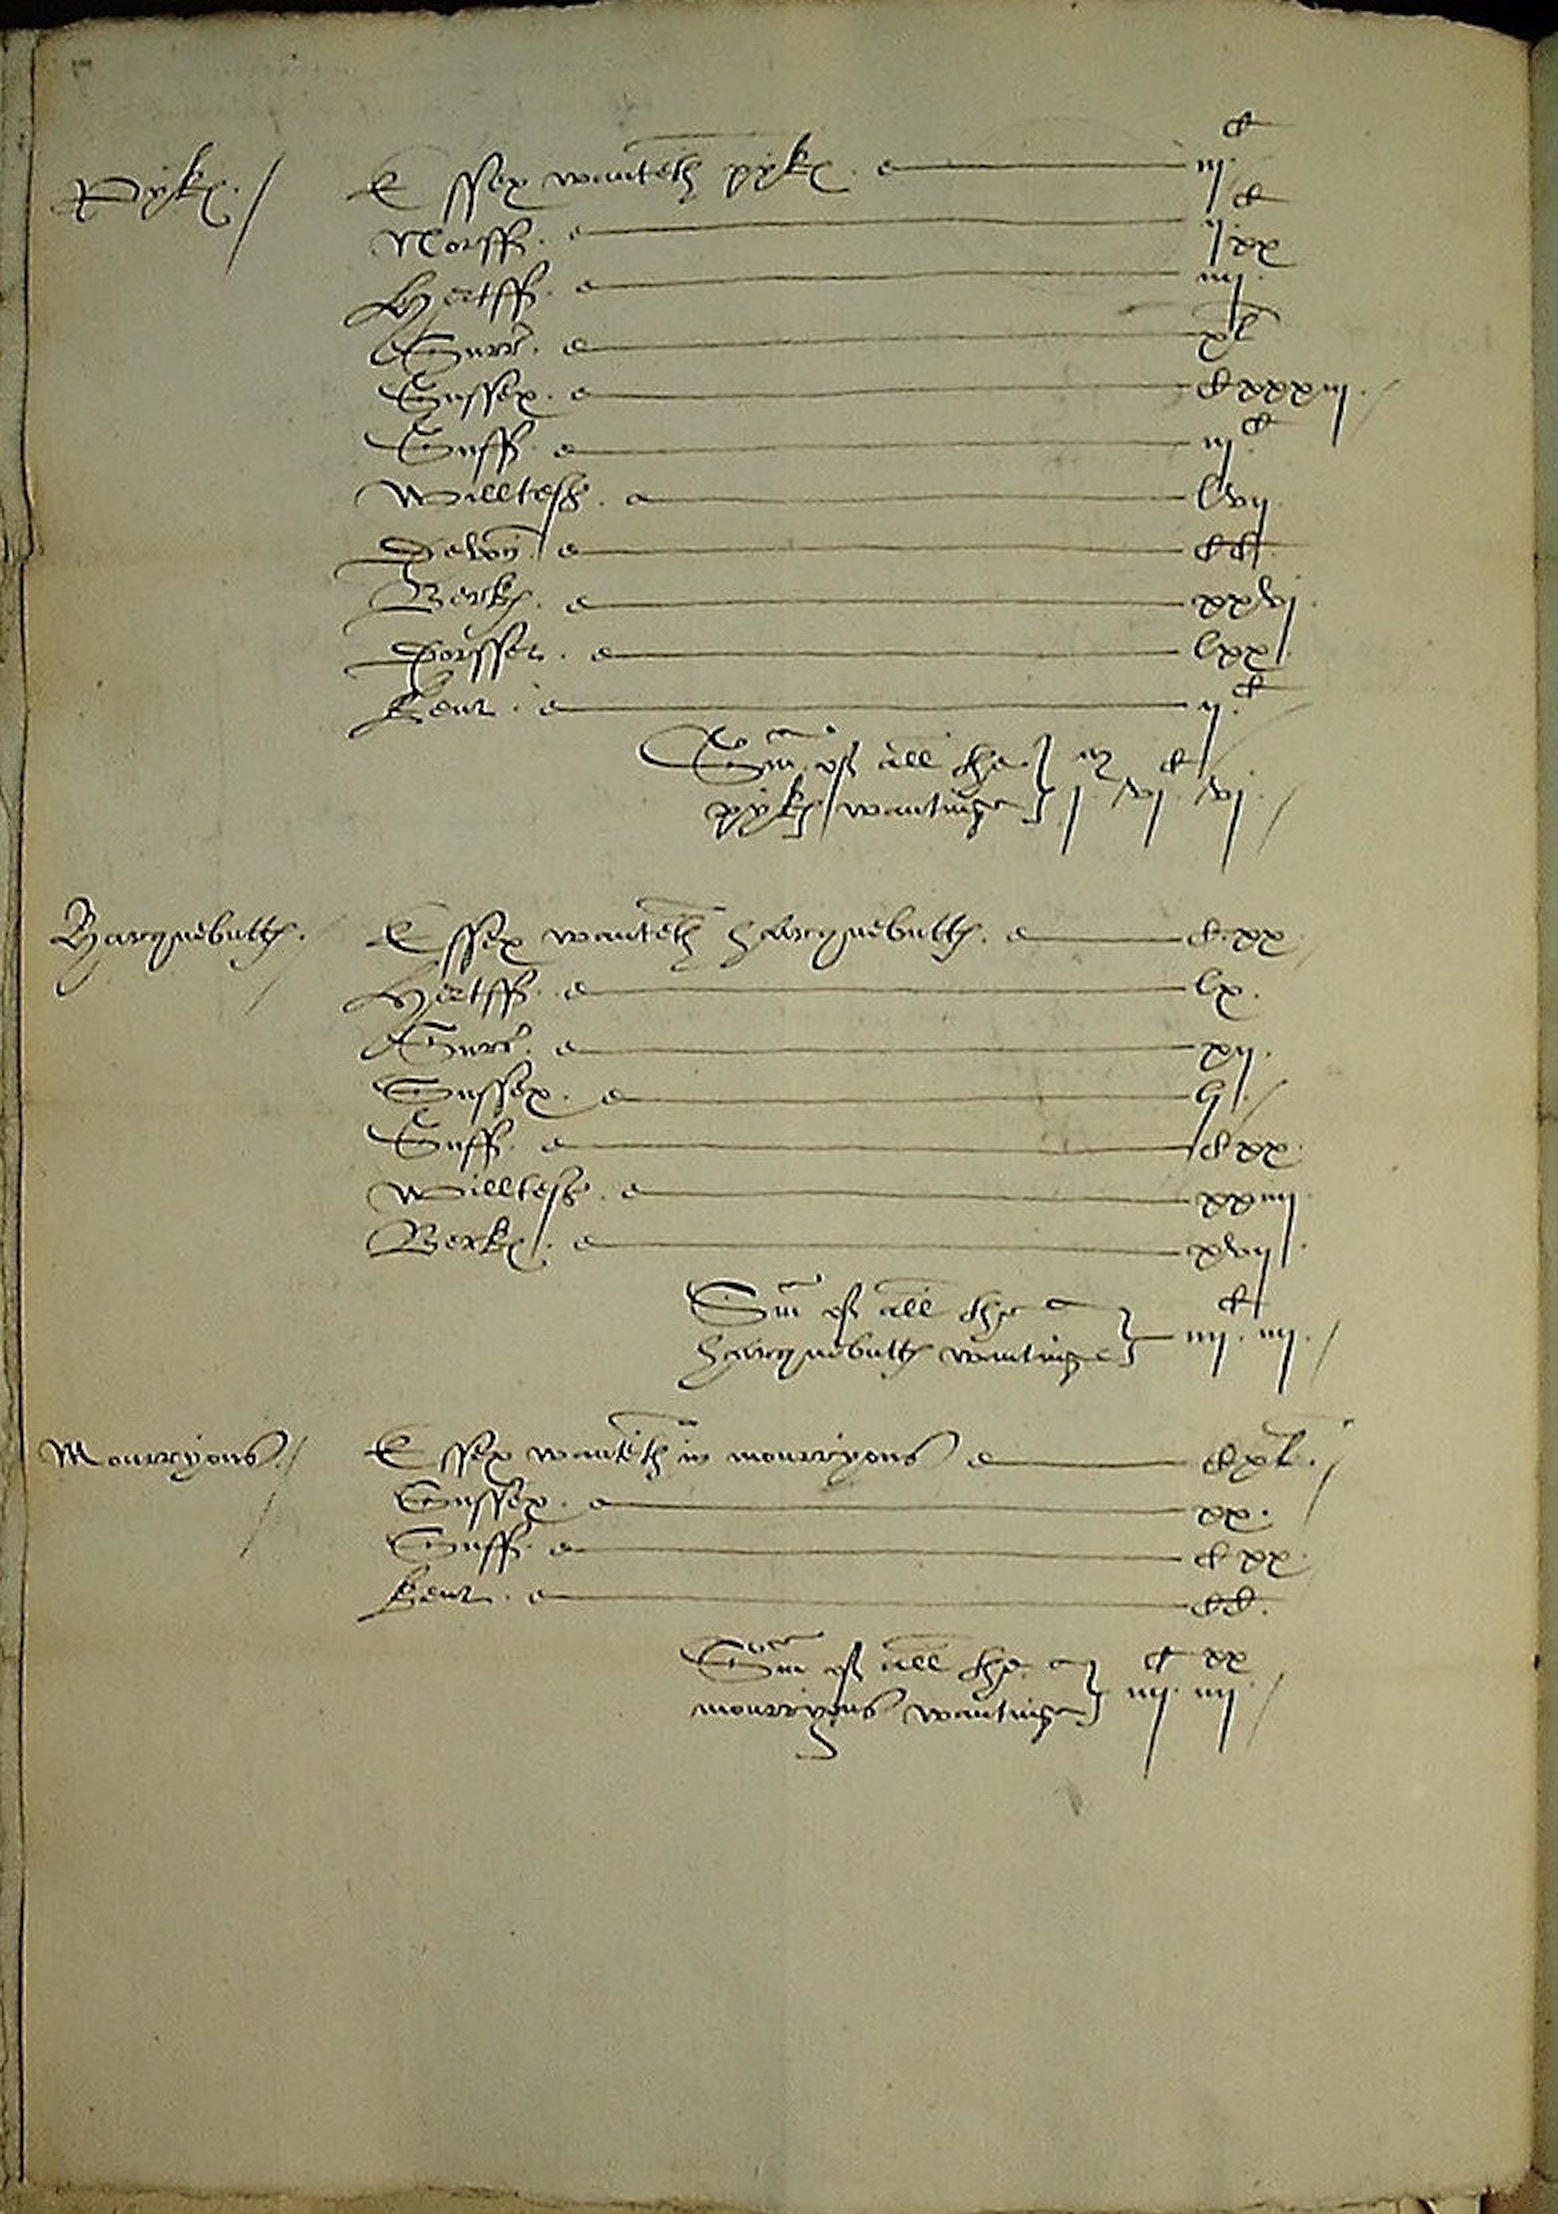 Pykes /
Essex wanteth pykes iij C
Norff. ij C
Hertff. iiij xx
Surr. xl
Sussex. Cxxxiij. /
Suff. iij C
Willtesh. lvij
Devon CC.
Berkes. xxvj.
Dorsset. lxx.
Kent. ij C /
Sm of all the
pykes wantinge } j M vj C vj. /
Harquebuttes. /
Essex wanteth harquebuttes. C.xx. /
Hertff. lx.
Surr. xij.
Sussex. lj. /
Suff. Cxx.
Willtesh. xxiiij.
Berkes. xvij.
Sm of all the
harquebuttes wantinge } iiij C iiij. /
Mourryons. /
Essex wanteth in mourryons Cxl. /
Sussex. xx.
Suff. Cxx.
Kent. CC.
Sm of all the
mourryons wantinge } iiij C iiij xx /